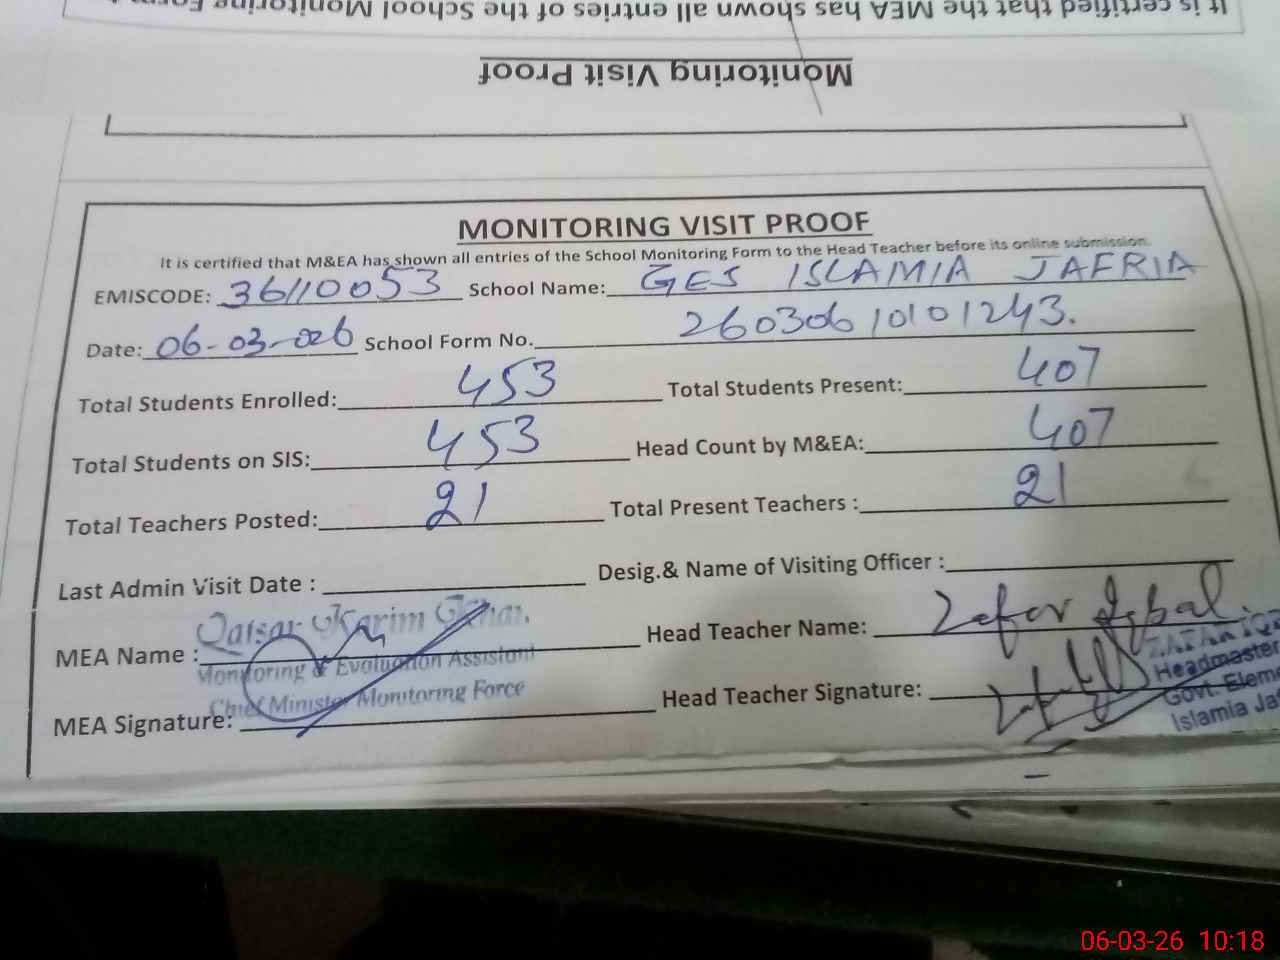 It is certified that the MEA has shown all entries of the School Monitoring Form t
Monitoring Visit Proof
MONITORING VISIT PROOF
It is certified that M&EA has shown all entries of the School Monitoring Form to the Head Teacher before its online submission.
EMISCODE: 36110053 School Name: GES ISLAMIA JAFRIA
Date: 06-03-026 School Form No. 26030610101243.
Total Students Enrolled: 453 Total Students Present: 407
Total Students on SIS: 453 Head Count by M&EA: 407
Total Teachers Posted: 21 Total Present Teachers : 21
Last Admin Visit Date : Desig.& Name of Visiting Officer :
MEA Name : Qaisar Karim Head Teacher Name: Zafar Iqbal
Monitoring & Evaluation Assistant
Chief Minister Monitoring Force
MEA Signature: Head Teacher Signature:
ZAFAR IQB
Headmaster
Govt. Eleme
Islamia Ja
06-03-26 10:18